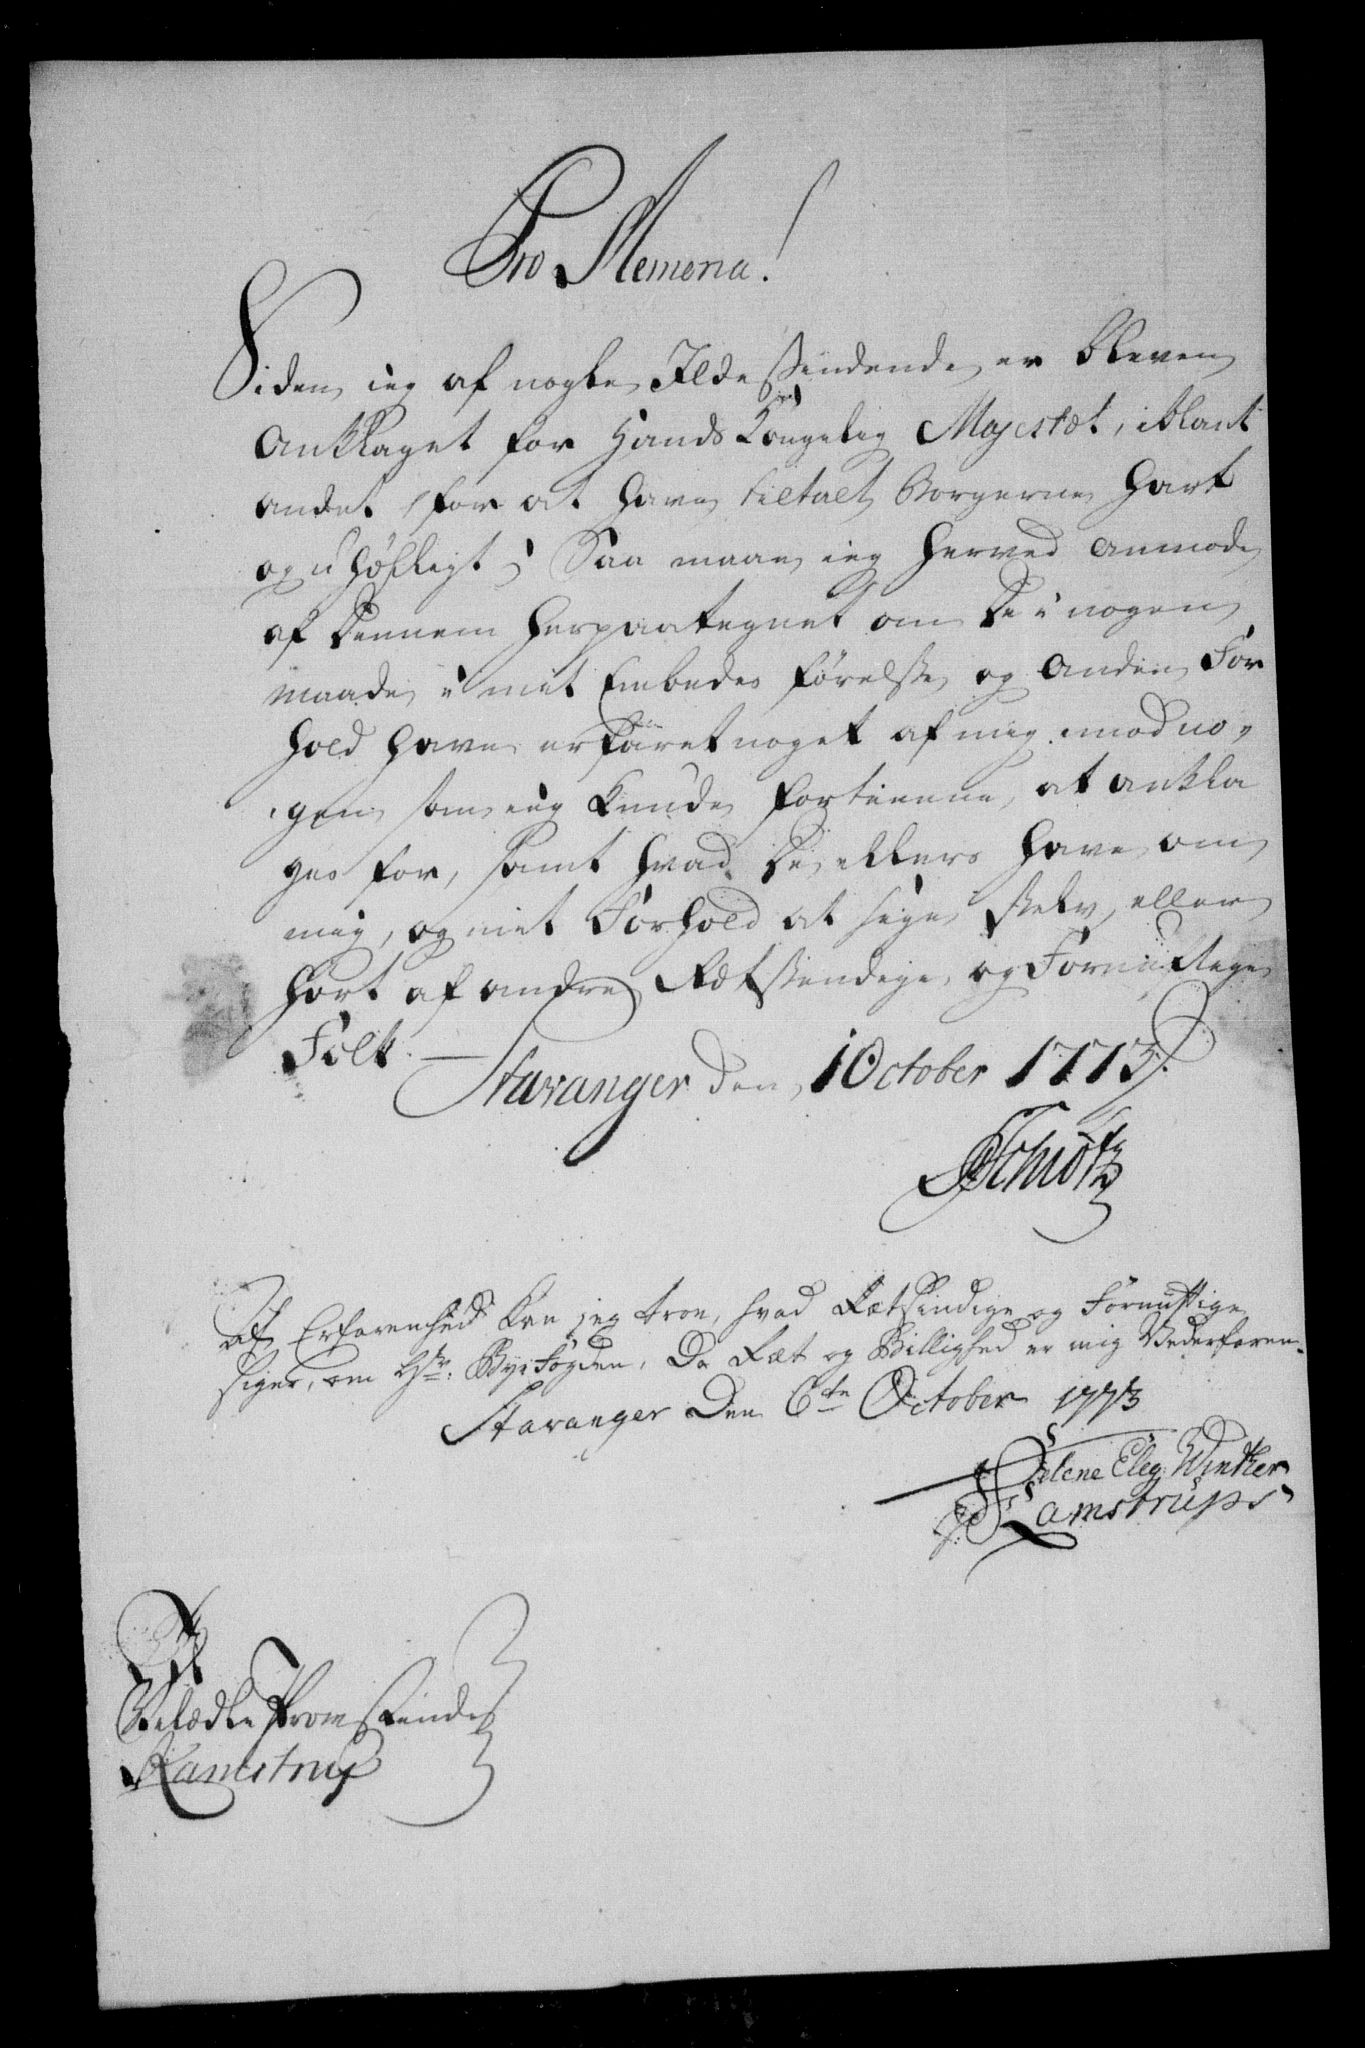 Pro Memoria!
Siden ieg af nogle Ilde Sindende er bleven
Anklaget for Hands Kongelig Majestæt, iblant
andet for at have tiltalt Borgerne hart
og uhöfligt; Saa maae ieg herved anmode
af Dennem herpaategnet om De i nogen
maade i mit Embedes förelse og Anden For
hold have erfaret noget af mig imod no-
gen som ieg kunde fortiene at ankla
ges for, samt hvad De ellers have om
mig, og mit Forhold at sige selv, eller
hört af andre Rætsindige og Fornuftige
Folk. — Stavanger den 1 October 1773.
Schiötz
Af Erfarenhed kan jeg troe, hvad Rætsindige og Fornuftige
siger, om Hr. Bye Fogden, Da Ræt og Billighed er mig Vederfaren.
Stavanger Den 6te October 1773
Helene Eleg Winther
Sl. Ramstrups
Til
Velædle Frue
Ramstrup